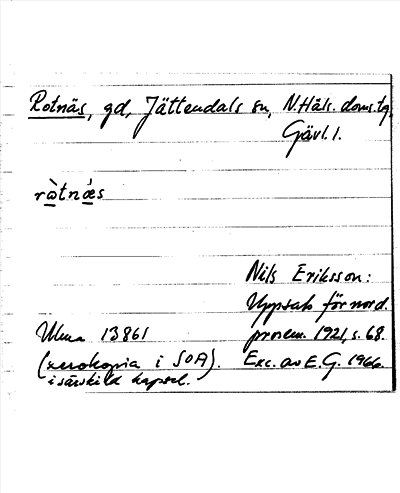 Rotnäs, gd, Jättendals sn, N.Häls. doms.tg,
Gävl.l.
ràtnǽs
Nils Eriksson:
Uppsats för nord.
prosem. 1921, s. 68.
Exc. av E.G. 1966.
Ulma 13861
(xerokopia i SOA).
i särskild kapsel.